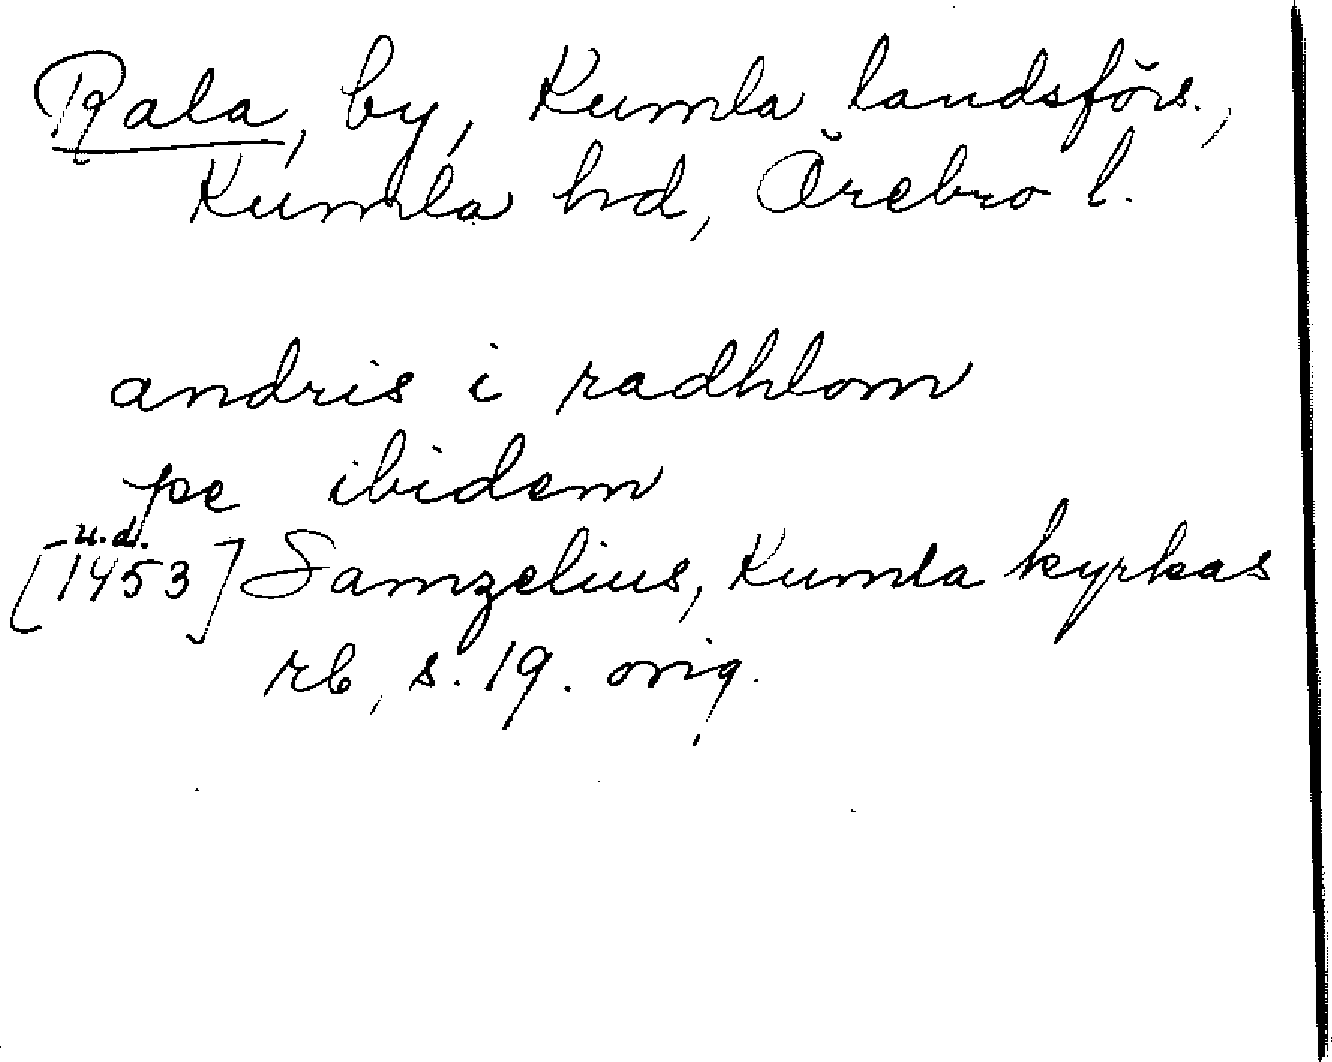 Rala, by, Kumla landsförs.,
Kumla hd, Örebro l.
andris i radhlom
pe ibidem
u.d.
[1453] Samzelius, Kumla kyrkas
rb, s. 19. orig.